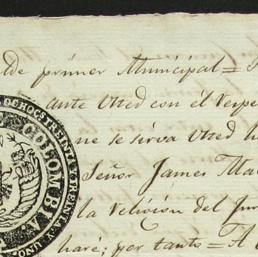 lde primer Municipal =
ante Usted con el respe
ne se sirva Usted h
Señor James Ma
la Velicion del Jur
haré; por tanto = A
DE OCHOCS TREINTA Y TREINTA Y UNO
COLOMBIA